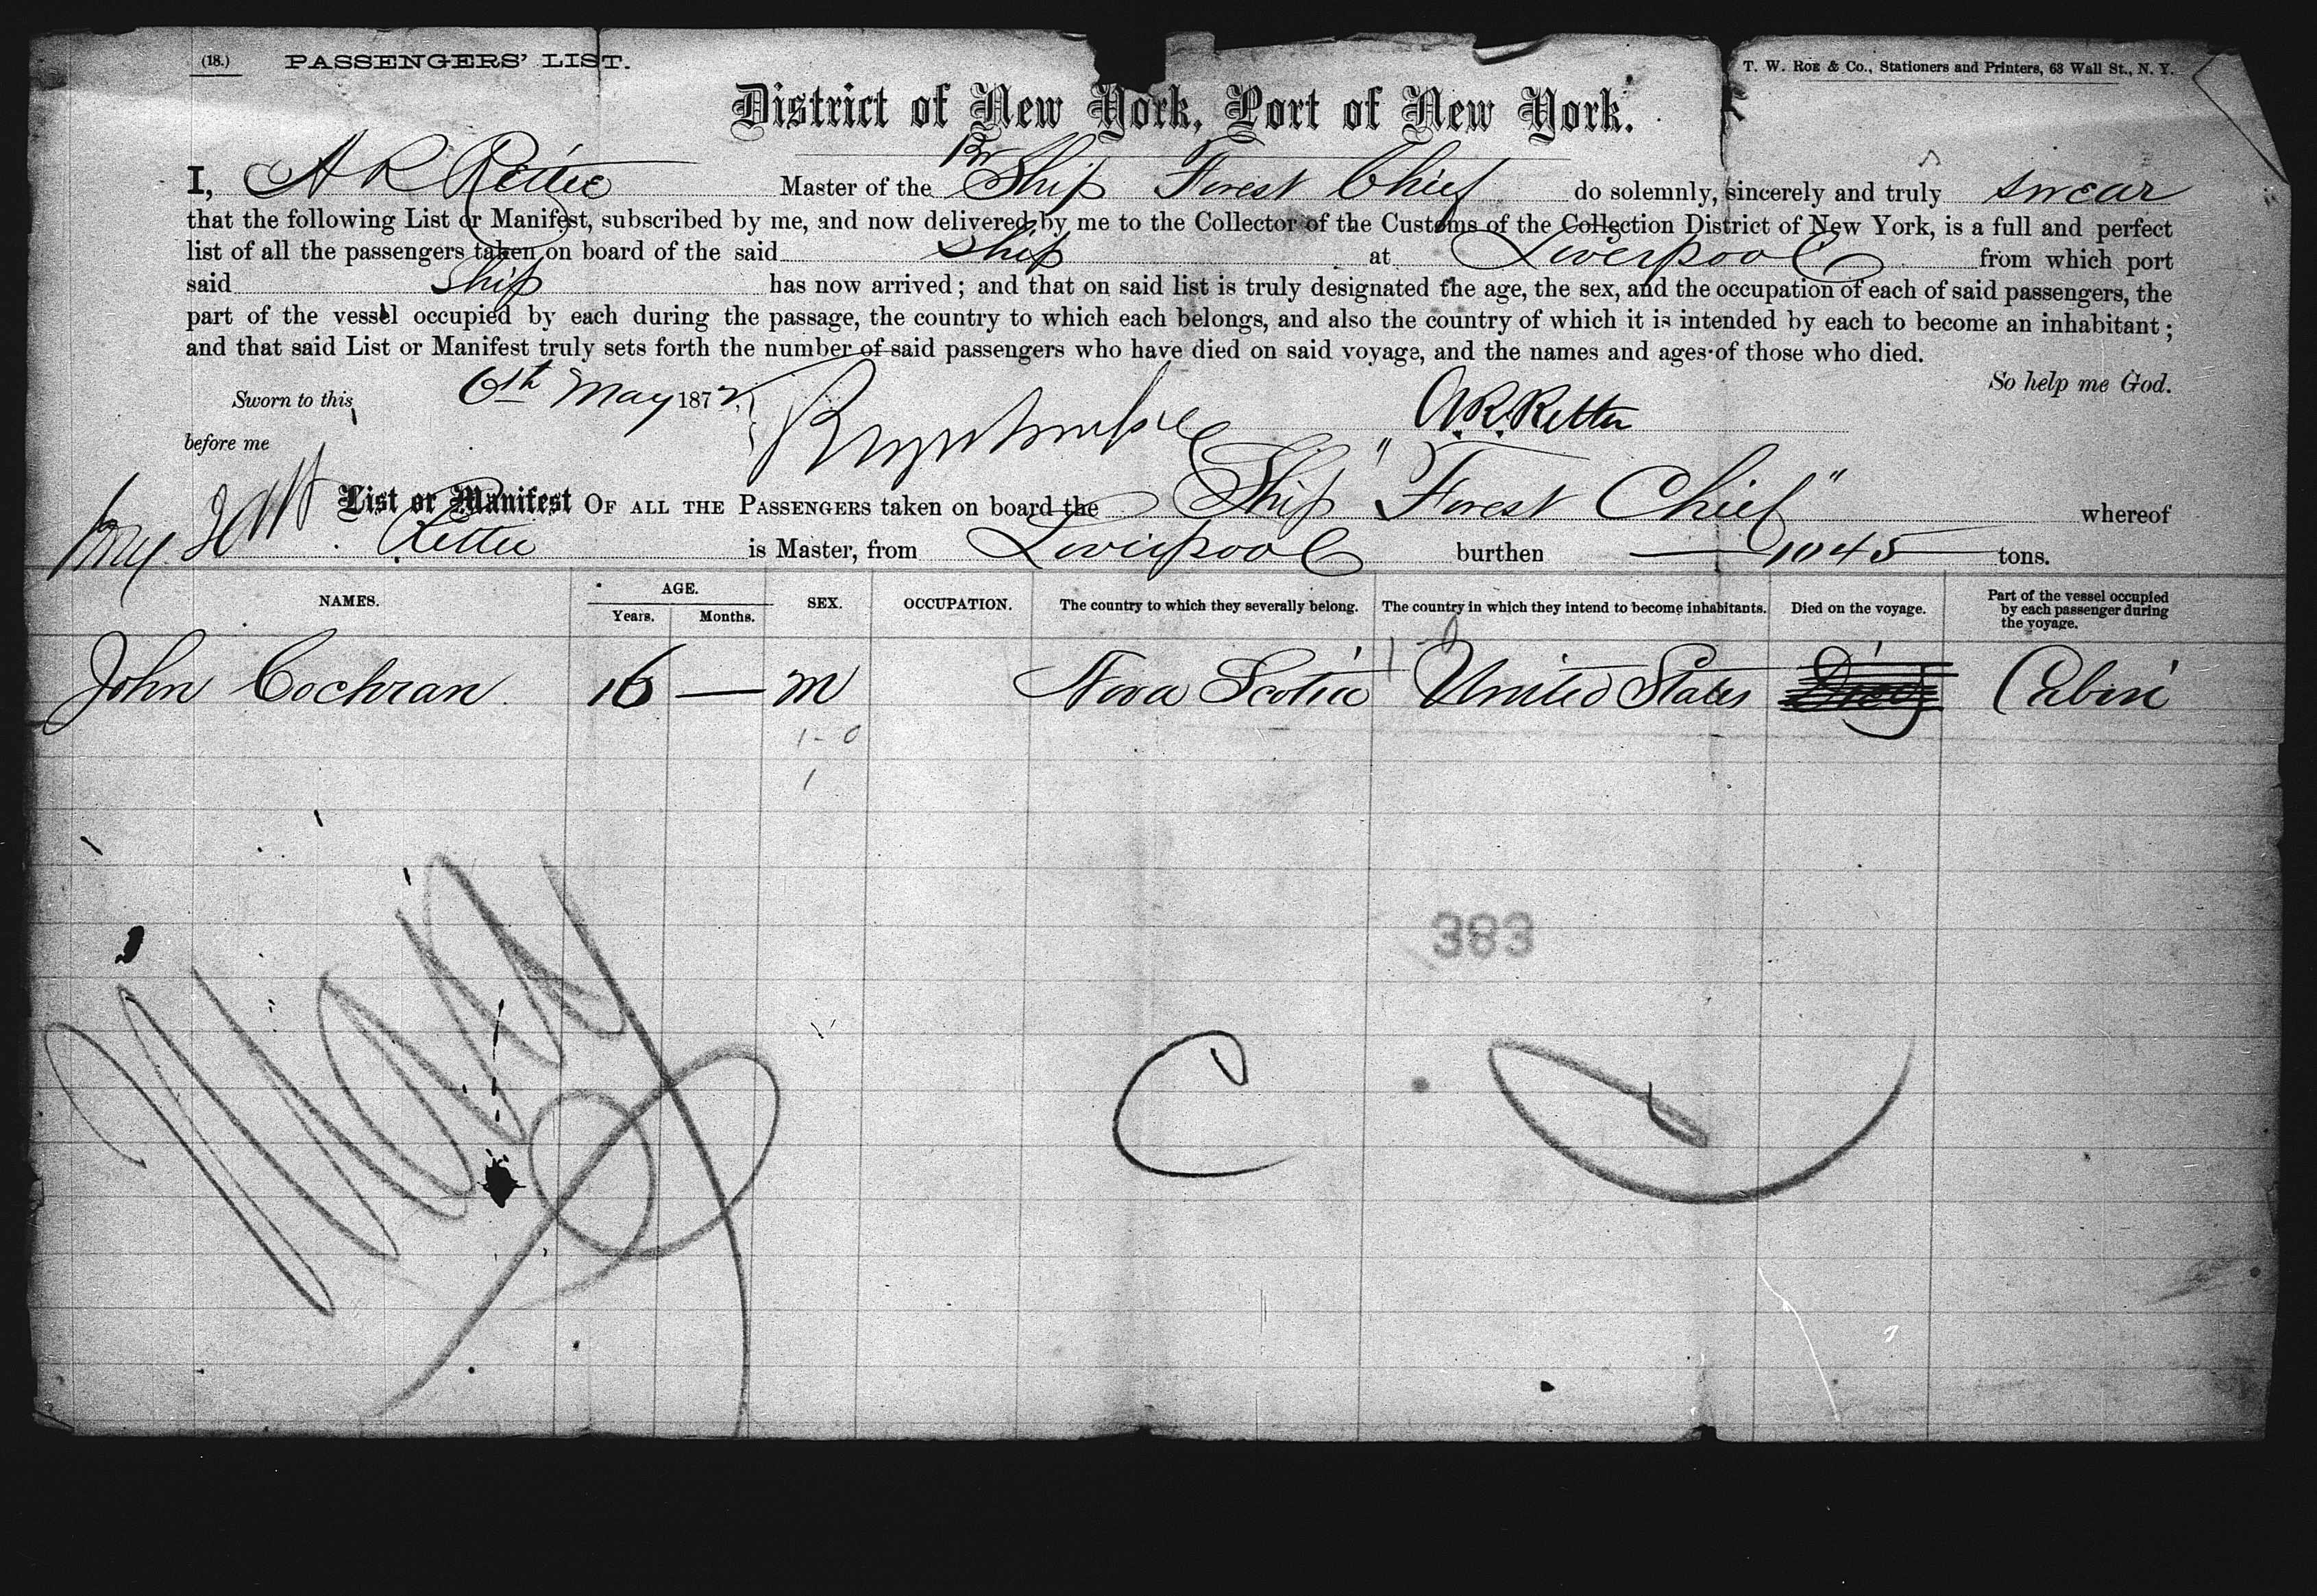 (18.) PASSENGERS' LIST.
T. W. ROE & Co., Stationers and Printers, 63 Wall St., N. Y.
District of New York, Port of New York.
I, A R Rettie Master of the Br Ship Forest Chief do solemnly, sincerely and truly swear
that the following List or Manifest, subscribed by me, and now delivered by me to the Collector of the Customs of the Collection District of New York, is a full and perfect
list of all the passengers taken on board of the said Ship at Liverpool from which port
said Ship has now arrived; and that on said list is truly designated the age, the sex, and the occupation of each of said passengers, the
part of the vessel occupied by each during the passage, the country to which each belongs, and also the country of which it is intended by each to become an inhabitant;
and that said List or Manifest truly sets forth the number of said passengers who have died on said voyage, and the names and ages of those who died.
So help me God.
Sworn to this 6th May 1872
before me
List or Manifest OF ALL THE PASSENGERS taken on board the Ship "Forest Chief" whereof
Rettie is Master, from Liverpool burthen 1045 tons.
NAMES. AGE. Years. Months. SEX. OCCUPATION. The country to which they severally belong. The country in which they intend to become inhabitants. Died on the voyage. Part of the vessel occupied by each passenger during the voyage.
John Cochran 16 — m Nova Scotia United States Cabin
1-0
1
383
May